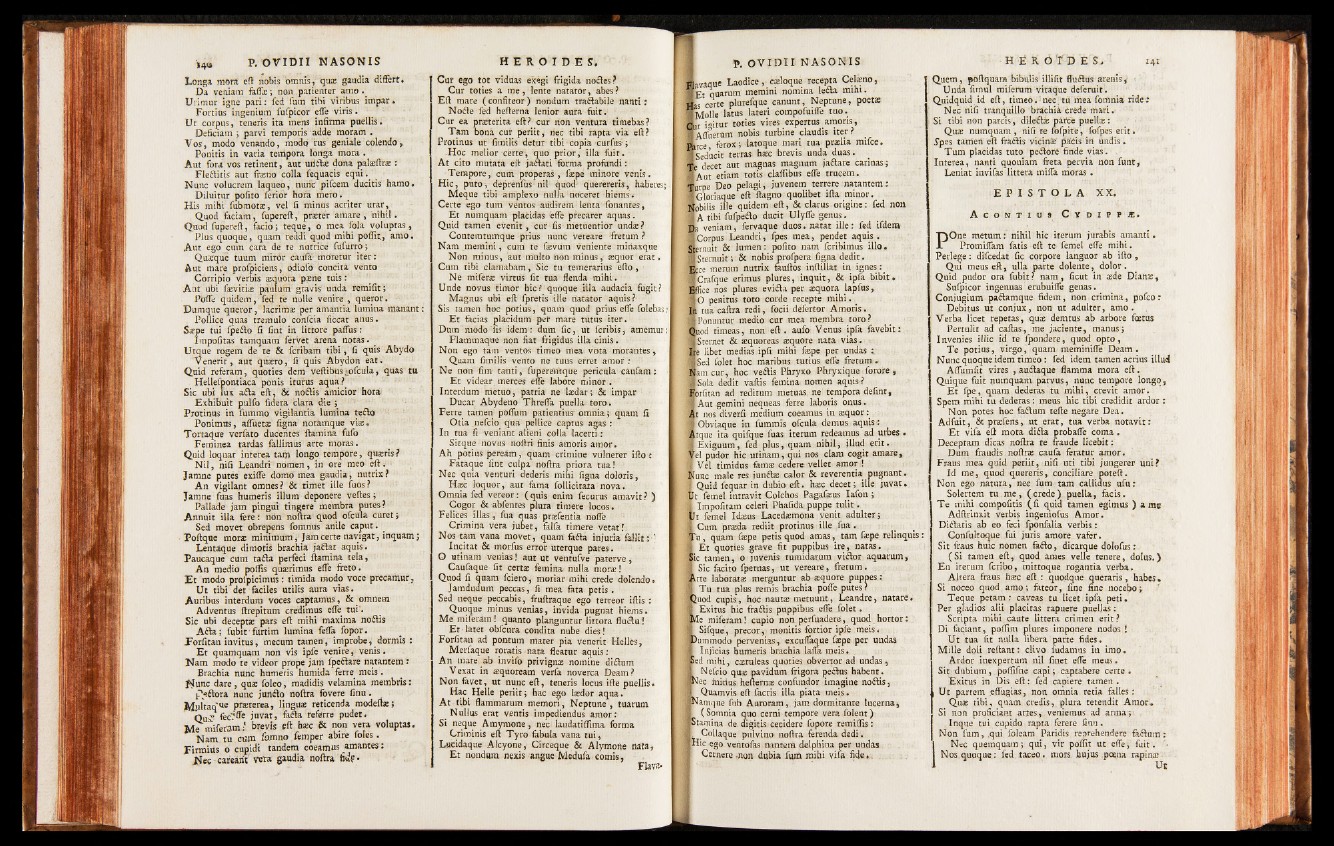 140 P. OVIDII NASONIS
Longa mora eſt nobis omnis, quæ gaudia differt.
Da veniam faſſæ; non patienter amo.
Urimur igne pari: ſed ſum tibi viribus impar.
Fortius ingenium ſuſpicor eſſe viris.
Ut corpus, teneris ita mens infirma puellis.
Deficiam; parvi temporis adde moram.
Vos, modo venando, modo rus geniale colendo,
Ponitis in varia tempora longa mora.
Aut fora vos retinent, aut unctæ dona palæſtræ:
Flectitis aut fræno colla ſequacis equi.
Nunc volucrem laqueo, nunc piſcem ducitis hamo.
Diluitur poſito ſerior hora mero.
His mihi ſubmotæ, vel ſi minus acriter urar,
Quod faciam, ſupereſt, præter amare, nihil.
Quod ſupereſt, facio; teque, o mea ſola voluptas,
Plus quoque, quam reddi quod mihi poſſit, amo.
Aut ego cum cara de te nutrice ſuſurro;
Quæque tuum miror cauſſa moretur iter:
Aut mare proſpiciens, odioſo concita vento
Corripio verbis æquora pæne tuis:
Aut ubi ſævitiæ paulum gravis unda remiſit;
Poſſe quidem, ſed te nolle venire, queror.
Dumque queror, lacrimæ per amantia lumina manant:
Pollice quas tremulo conſcia ſiccat anus.
Sæpe tui ſpecto ſi ſint in littore paſſus:
Impoſitas tamquam ſervet arena notas.
Utque rogem de te & ſcribam tibi, ſi quis Abydo
Venerit, aut quæro, ſi quis Abydon eat.
Quid referam, quoties dem veſtibus oſcula, quas tu
Helleſpontiaca ponis iturus aqua?
Sic ubi lux acta eſt, & noctis amicior hora
Exhibuit pulſo ſidera clara die;
Protinus in ſummo vigilantia lumina tecto
Ponimus, aſſuetæ ſigna notamque viæ.
Tortaque verſato ducentes ſtamina fuſo
Feminea tardas fallimus arte moras.
Quid loquar interea tam longo tempore, quæris?
Nil, niſi Leandri nomen, in ore meo eſt.
Jamne putes exiſſe domo mea gaudia, nutrix?
An vigilant omnes? & timet ille ſuos?
Jamne ſuas humeris illum deponere veſtes;
Pallade jam pingui tingere membra putes?
Annuit illa fere: non noſtra quod oſcula curet;
Sed movet obrepens ſomnus anile caput.
Poſtque moræ minimum, Jam certe navigat, inquam;
Lentaque dimotis brachia jactat aquis.
Paucaque cum tacta perfeci ſtamina tela,
An medio poſſis quærimus eſſe freto.
Et modo proſpicimus: timida modo voce precamur,
Ut tibi det faciles utilis aura vias.
Auribus interdum voces captamus, & omnem
Adventus ſtrepitum credimus eſſe tui.
Sic ubi deceptæ pars eſt mihi maxima noctis
Acta; ſubit furtim lumina feſſa ſopor.
Forſitan invitus, mecum tamen, improbe, dormis:
Et quamquam non vis ipſe venire, venis.
Nam modo te videor prope jam ſpectare natantem:
Brachia nunc humeris humida ferre meis.
Nunc dare, quæ ſoleo, madidis velamina membris:
Pectora nunc juncto noſtra fovere ſinu.
Multaque præterea, linguæ reticenda modeſtæ;
Quæ feciſſe juvat, facta referre pudet.
Me miferam! brevis eſt hæc & non vera voluptas.
Nam tu cum ſomno ſemper abire ſoles.
Firmius o cupidi tandem coeamus amantes:
Nec careant vera gaudia noſtra fide.
HEROIDES.
Cur ego tot viduas exegi frigida noctes?
Cur toties a me, lente natator, abes?
Eſt mare (confiteor) nondum tractabile nanti:
Nocte ſed heſterna lenior aura fuit.
Cur ea præterita eſt? cur non ventura timebas?
Tam bona cur periit, nec tibi rapta via eſt?
Protinus ut ſimilis detur tibi copia curſus;
Hoc melior certe, quo prior, illa fuit.
At cito mutata eſt jactati forma profundi:
Tempore, cum properas, ſæpe minore venis.
Hic, puto, deprenſus nil quod quererèris, haberes;
Meque tibi amplexo nulla noceret hiems.
Certe ego tum ventos audirem lenta ſonantes,
Et numquam placidas eſſe precarer aquas.
Quid tamen evenit, cur ſis metuentior undæ?
Contemtumque prius nunc vereare fretum?
Nam memini, cum te ſævum veniente minaxque
Non minus, aut multo non minus, æquor erat.
Cum tibi clamabam, Sic tu temerarius eſto,
Ne miſeræ virtus ſit tua flenda mihi.
Unde novus timor hic? quoque illa audacia fugit?
Magnus ubi eſt ſpretis ille natator aquis?
Sis tamen hoc potius, quam quod prius eſſe ſolebas;
Et facias placidum per mare tutus iter.
Dum modo ſis idem: dum ſic, ut ſcribis, amemur:
Flammaque non fiat frigidus illa cinis.
Non ego tam ventos timeo mea vota morantes,
Quam ſimilis vento ne tuus erret amor:
Ne non ſim tanti, ſuperentque pericula cauſam:
Et videar merces eſſe labore minor.
Interdum metuo, patria ne lædar; & impar
Dicar Abydeno Threſſa puella toro.
Ferre tamen poſſum patientius omnia; quam ſi
Otia neſcio qua pellice captus agas:
In tua ſi veniant alieni colla lacerti:
Sitque novus noſtri finis amoris amor.
Ah potius peream, quam crimine vulnerer iſto:
Fataque ſint culpa noſtra priora tua!
Nec quia venturi dederis mihi ſigna doloris,
Hæc loquor, aut fama ſollicitata nova.
Omnia ſed vereor: (quis enim ſecurus amavit?)
Cogor & abſentes plura timere locos.
Felices illas, ſua quas præſentia noſſe
Crimina vera jubet, falſa timere vetat!
Nos tam vana movet, quam facta injuria fallit:
Incitat & morſus error uterque pares.
O utinam venias! aut ut ventuſve paterve,
Cauſaque ſit certæ femina nulla moræ!
Quod ſi quam ſciero, moriar mihi crede dolendo.
Jamdudum peccas, ſi mea fata petis.
Sed neque peccabis, fruſtraque ego terreor iſtis:
Quoque minus venias, invida pugnat hiems.
Me miferam! quanto planguntur littora fluctu!
Et latet obſcura condita nube dies!
Forſitan ad pontum mater pia venerit Helles,
Merſaque roratis nata fleatur aquis:
An mare ab inviſo privignæ nomine dictum
Vexat in æquoream verſa noverca Deam?
Non favet, ut nunc eſt, teneris locus iſte puellis.
Hac Helle periit; hac ego lædor aqua.
At tibi flammarum memori, Neptune, tuarum
Nullus erat ventis impediendus amor:
Si neque Amymone, nec laudatiſſima forma
Criminis eſt Tyro fabula vana tui,
Lucidaque Alcyone, Circeque & Alymone nata,
Et nondum nexis angue Meduſa comis,
Flava-
P. OVIDII NASONIS
Flavaque Laodice, cæloque recepta Celæno,
Et quarum memini nomina lecta mihi.
Has certe plureſque canunt, Neptune, poetæ
Molle latus lateri compoſuiſſe tuo.
Cur igitur toties vires expertus amoris,
Aſſuetum nobis turbine claudis iter?
Parce, ferox; latoque mari tua prælia miſce.
Seducit terras hæc brevis unda duas.
Te decet aut magnas magnum jactare carinas;
Aut etiam totis claſſibus eſſe trucem.
Turpe Deo pelagi, juvenem terrere natantem:
Gloriaque eſt ſtagno quolibet iſta minor.
Nobilis ille quidem eſt, & clarus origine: ſed non
A tibi ſuſpecto ducit Ulyſſe genus.
Da veniam, ſervaque duos. natat ille: ſed iſdem
Corpus Leandri, ſpes mea, pendet aquis.
Sternuit & lumen: poſito nam ſcribimus illo.
Sternuit: & nobis proſpera ſigna dedit.
Ecce merum nutrix fauſtos inſtillat in ignes:
Craſque erimus plures, inquit, & ipſa bibit.
Effice nos plures evicta per æquora lapſus,
O penitus toto corde recepte mihi.
In tua caſtra redi, ſocii deſertor Amoris.
Ponuntur medio cur mea membra toro?
Quod timeas, non eſt. auſo Venus ipſa favebit:
Sternet & æquoreas æquore nata vias.
Ire libet medias ipſi mihi ſæpe per undas:
Sed ſolet hoc maribus tutius eſſe fretum.
Nam cur, hoc vectis Phryxo Phryxique ſorore,
Sola dedit vaſtis femina nomen aquis?
Forſitan ad reditum metuas ne tempora deſint,
Aut gemini nequeas ferre laboris onus.
At nos diverſi medium coeamus in æquor:
Obviaque in ſummis oſcula demus aquis:
Atque ita quiſque ſuas iterum redeamus ad urbes.
Exiguum, ſed plus, quam nihil, illud erit.
Vel pudor hic utinam, qui nos clam cogit amare,
Vel timidus famæ cedere vellet amor!
Nunc male res junctæ calor & reverentia pugnant.
Quid ſequar in dubio eſt. hæc decet; ille juvat.
Ut ſemel intravit Colchos Pagaſæus Iaſon;
Impoſitam celeri Phaſida puppe tulit.
Ut ſemel Idæus Lacedæmona venit adulter;
Cum præda rediit protinus ille ſua.
Tu, quam ſæpe petis quod amas, tam ſæpe relinquis:
Et quoties grave ſit puppibus ire, natas.
Sic tamen, o juvenis tumidarum victor aquarum,
Sic facito ſpernas, ut vereare, fretum.
Arte laboratæ merguntur ab æquore puppes:
Tu tua plus remis brachia poſſe putes?
Quod cupis, hoc nautæ metuunt, Leandre, natare.
Exitus hic fractis puppibus eſſe ſolet.
Me miſeram! cupio non perſuadere, quod hortor:
Siſque, precor, monitis fortior ipſe meis.
Dummodo pervenias, excuſſaque ſæpe per undas
Injicias humeris brachia laſſa meis.
Sed mihi, cæruleas quoties obvertor ad undas,
Neſcio quæ pavidum frigora pectus habent.
Nec minus heſternæ confundor imagine noctis,
Quamvis eſt ſacris illa piata meis.
Namque ſub Auroram, jam dormitante lucerna,
(Somnia quo cerni tempore vera ſolent)
Stamina de digitis cecidere ſopore remiſſis:
Collaque pulvino noſtra ferenda dedi.
Hic ego ventoſas nantem delphina per undas
Cernere non dubia ſum mihi viſa fide.
HEROIDES. 141
Quem, poſtquam bibulis illiſit fluctus arenis,
Unda ſimul miſerum vitaque deſeruit.
Quidquid id eſt, timeo. nec tu mea ſomnia ride:
Nec niſi tranquillo brachia crede mari.
Si tibi non parcis, dilectæ parce puellæ:
Quæ numquam, niſi te ſoſpite, ſoſpes erit.
Spes tamen eſt fractis vicinæ pacis in undis.
Tum placidas tuto pectore finde vias.
Interea, nanti quoniam freta pervia non ſunt,
Leniat inviſas littera miſſa moras.
EPISTOLA XX.
ACONTIUS CYDIPPÆ.
PONE metum: nihil hic iterum jurabis amanti.
Promiſſam ſatis eſt te ſemel eſſe mihi.
Perlege: diſcedat ſic corpore languor ab iſto,
Qui meus eſt, ulla parte dolente, dolor.
Quid pudor ora ſubit? nam, ſicut in æde Dianæ,
Suſpicor ingenuas erubuiſſe genas.
Conjugium pactamque fidem, non crimina, poſco:
Debitus ut conjux, non ut adulter, amo.
Verba licet repetas, quæ demtus ab arbore fœtus
Pertulit ad caſtas, me jaciente, manus;
Invenies illic id te ſpondere, quod opto,
Te potius, virgo, quam meminiſſe Deam.
Nunc quoque idem timeo: ſed idem tamen acrius illud
Aſſumſit vires, auctaque flamma mora eſt.
Quique fuit numquam parvus, nunc tempore longo,
Et ſpe, quam dederas tu mihi, crevit amor.
Spem mihi tu dederas: meus hic tibi credidit ardor:
Non potes hoc factum teſte negare Dea.
Adfuit, & præſens, ut erat, tua verba notavit:
Et viſa eſt mota dicta probaſſe coma.
Deceptam dicas noſtra te fraude licebit:
Dum fraudis noſtræ cauſa feratur amor.
Fraus mea quid petiit, niſi uti tibi jungerer uni?
Id me, quod quereris, conciliare poteſt.
Non ego natura, nec ſum tam callidus uſu:
Solertem tu me, (crede) puella, facis.
Te mihi compoſitis (ſi quid tamen egimus) a me
Adſtrinxit verbis ingenioſus Amor.
Dictatis ab eo feci ſponſalia verbis:
Conſultoque fui juris amore vafer.
Sit fraus huic nomen facto, dicarque doloſus:
(Si tamen eſt, quod ames velle tenere, dolus.)
En iterum ſcribo, mittoque rogantia verba.
Altera fraus hæc eſt: quodque queraris, habes.
Si noceo quod amo; fateor, ſine fine nocebo;
Teque petam: caveas tu licet ipſa peti.
Per gladios alii placitas rapuere puellas:
Scripta mihi caute littera crimen erit?
Di faciant, poſſim plures imponere nodos!
Ut tua ſit nulla libera parte fides.
Mille doli reſtant: clivo ſudamus in imo.
Ardor inexpertum nil ſinet eſſe meus.
Sit dubium, poſſiſne capi; captabere certe.
Exitus in Dis eſt: ſed capiere tamen.
Ut partem effugias, non omnia retia falles:
Quæ tibi, quam credis, plura tetendit Amor.
Si non proficiant artes, veniemus ad arma;
Inque tui cupido rapta ferere ſinu.
Non ſum, qui ſoleam Paridis reprehendere factum:
Nec quemquam; qui, vir poſſit ut eſſe, fuit.
Nos quoque: ſed taceo. mors hujus pœna rapinæ
Ut